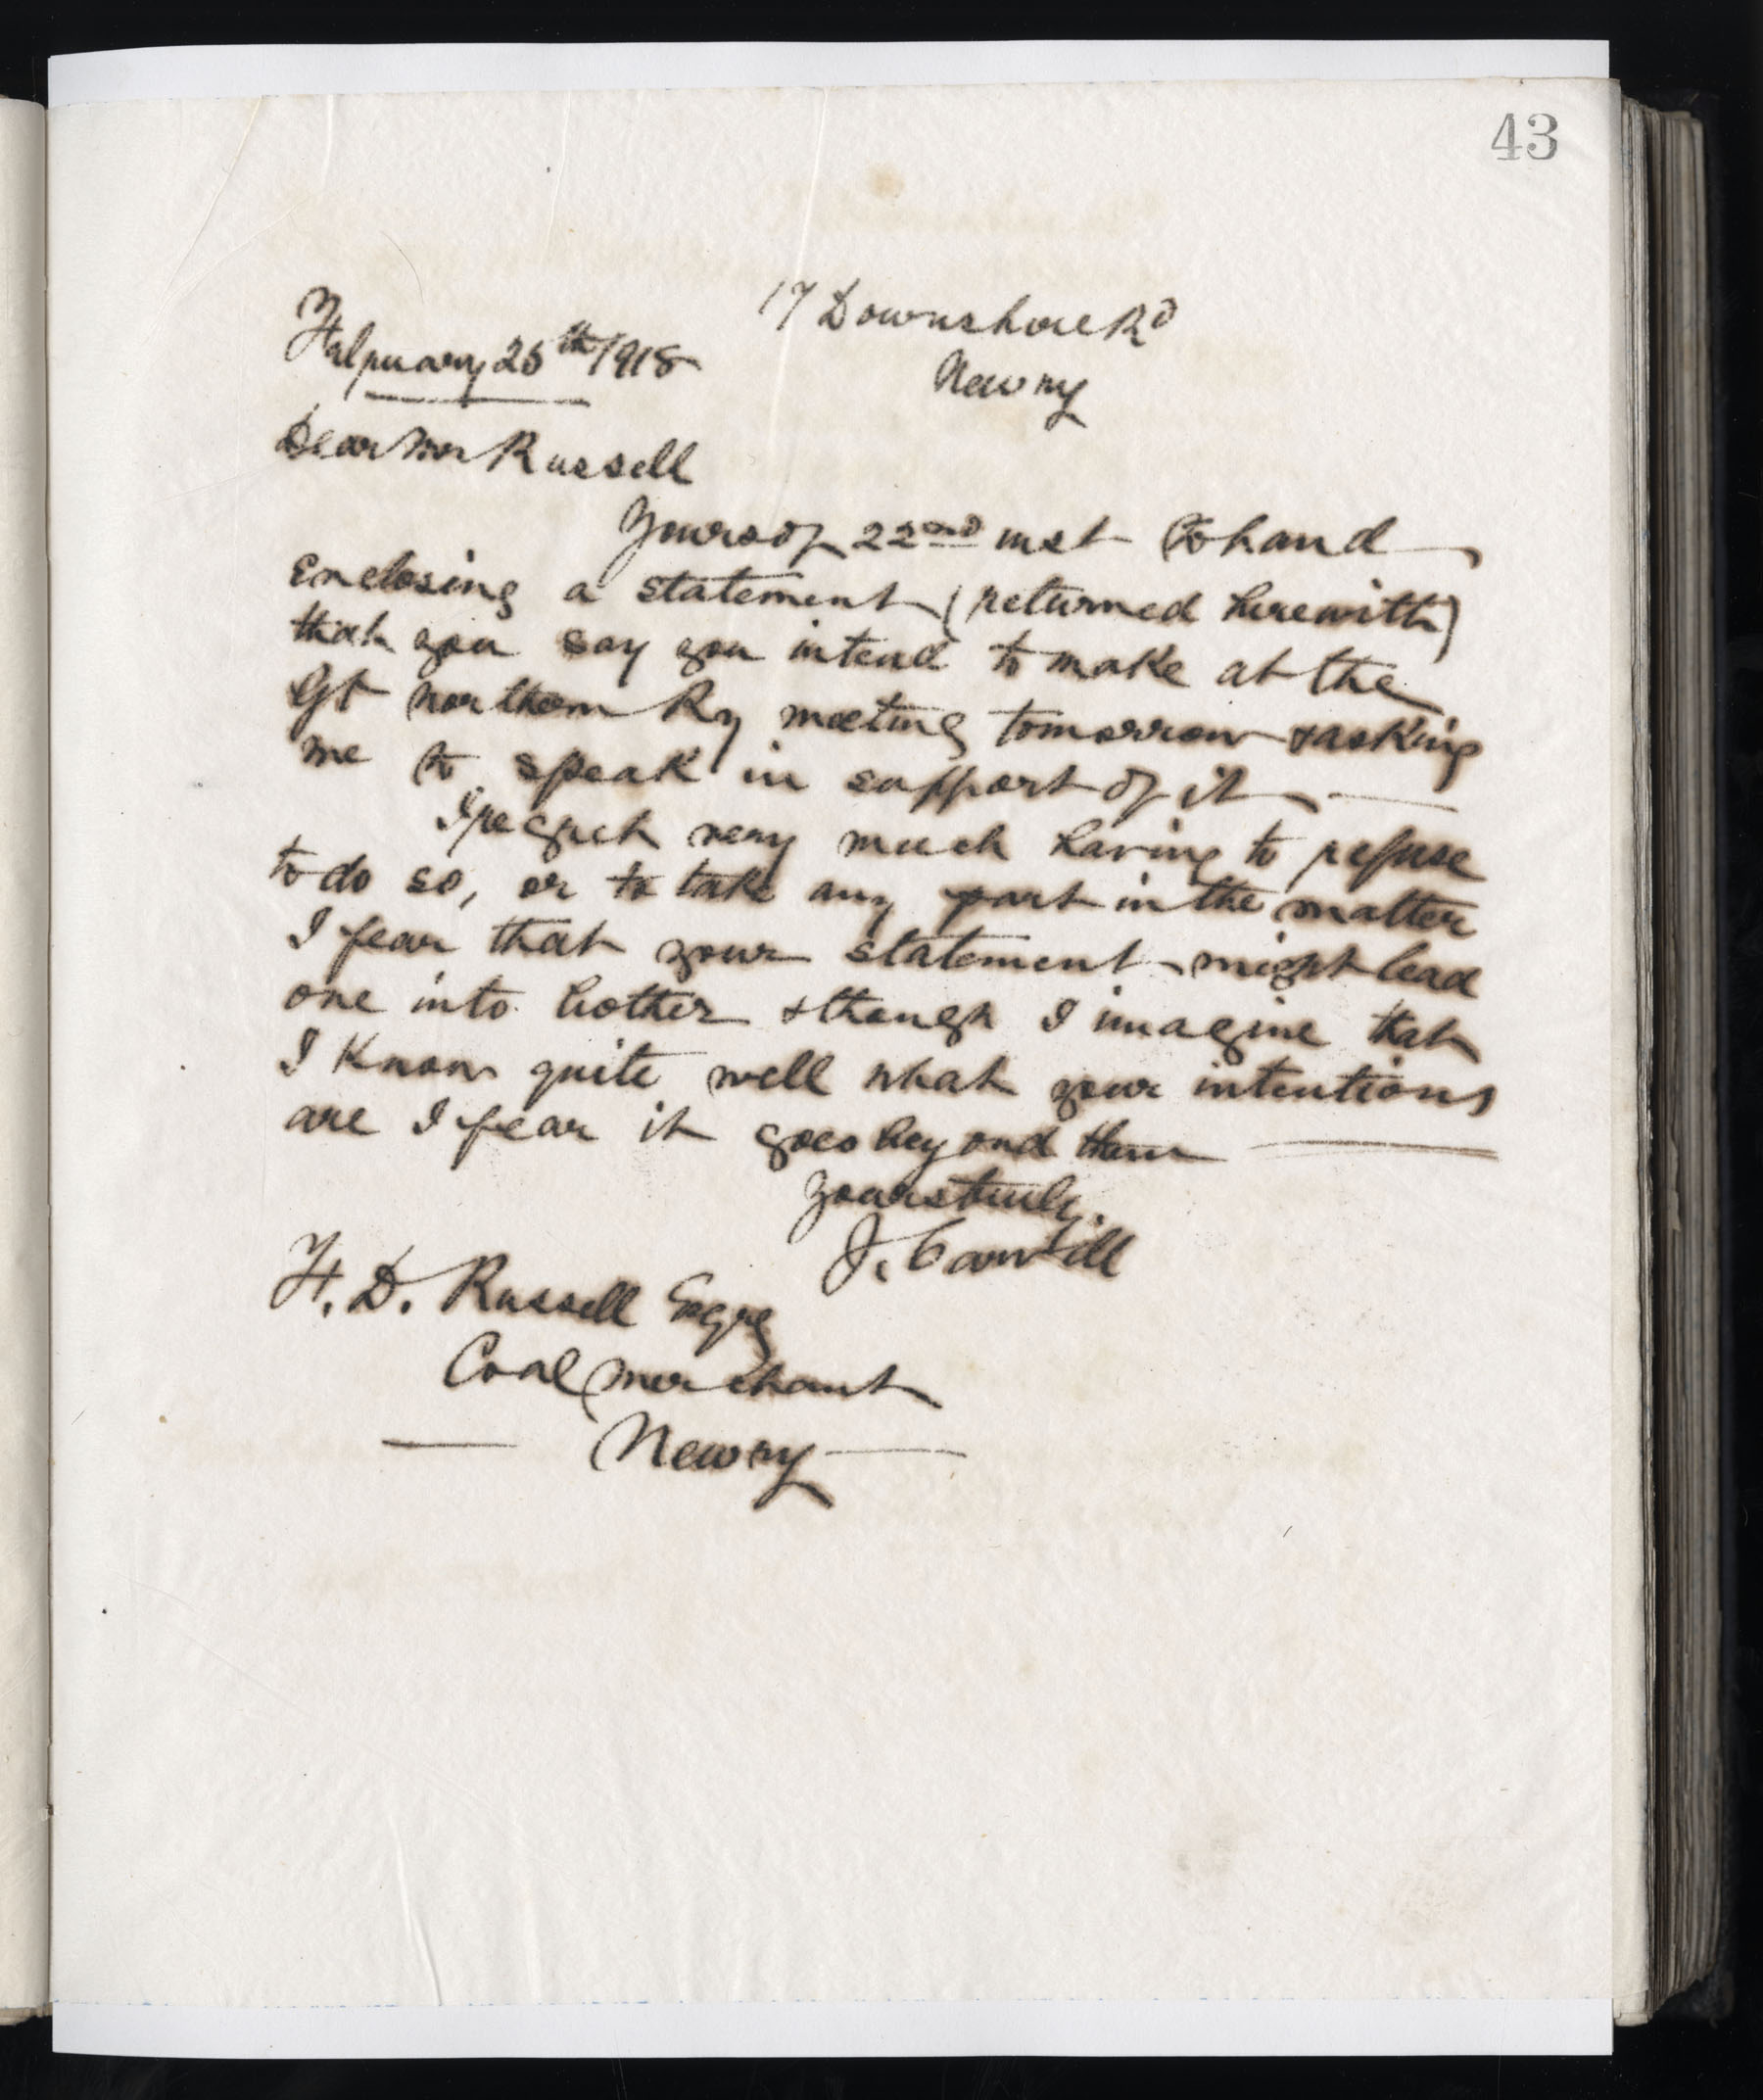 43
17 Downshire Rd
Newry
February 25th 1918
Dear Mr Russell
Yours of 22nd inst to hand
Enclosing a statement (returned herewith)
that you say you intend to make at the
Gt northern Ry meeting tomorrow & asking
me to speak in support of it
I regret very much having to refuse
to do so, or to take any part in the matter
I fear that your statement might lead
one into bother & though I imagine that
I know quite well what your intentions
are I fear it goes beyond them
Yours truly
J.
H. D. Russell Esqre
Coal merchant
Newry